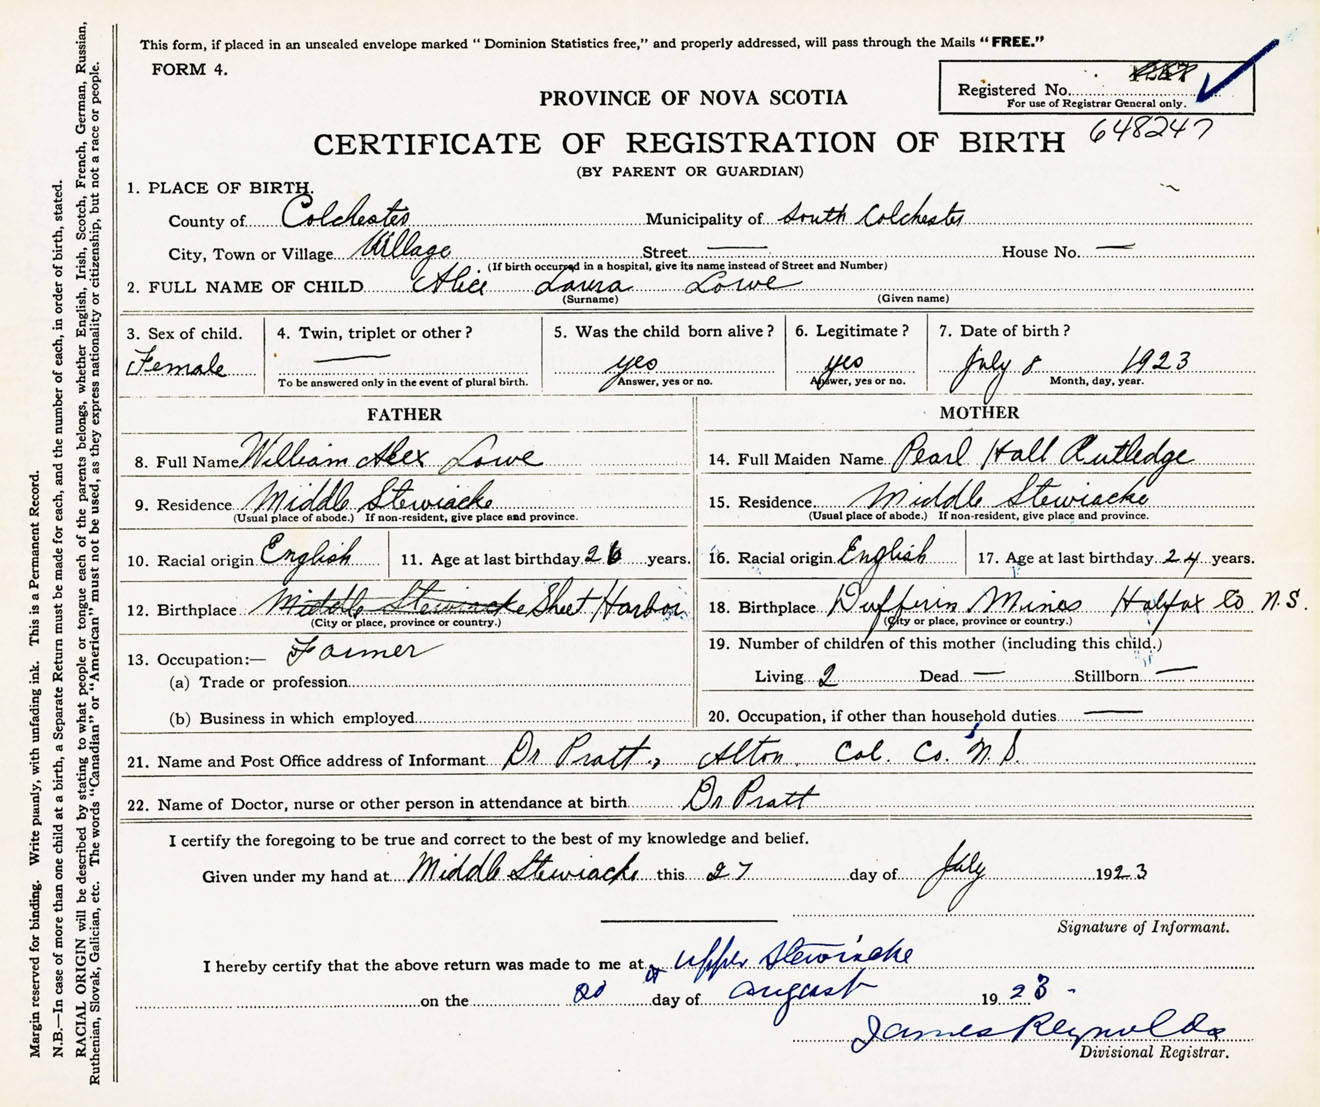 This form, if placed in an unsealed envelope marked “ Dominion Statistics free,” and properly addressed, will pass through the Mails “ FREE.”
FORM 4.
Registered No.
For use of Registrar General only.
648247
PROVINCE OF NOVA SCOTIA
CERTIFICATE OF REGISTRATION OF BIRTH
(BY PARENT OR GUARDIAN)
1. PLACE OF BIRTH.
County of Colchester Municipality of South Colchester
City, Town or Village Village Street — House No. —
(If birth occurred in a hospital, give its name instead of Street and Number)
2. FULL NAME OF CHILD Alice Laura Lowe
(Surname) (Given name)
3. Sex of child. 4. Twin, triplet or other ? 5. Was the child born alive ? 6. Legitimate ? 7. Date of birth ?
Female — yes yes July 8 1923
To be answered only in the event of plural birth. Answer, yes or no. Answer, yes or no. Month, day, year.
FATHER MOTHER
8. Full Name William Alex Lowe 14. Full Maiden Name Pearl Hall Rutledge
9. Residence Middle Stewiacke 15. Residence Middle Stewiacke
(Usual place of abode.) If non-resident, give place and province. (Usual place of abode.) If non-resident, give place and province.
10. Racial origin English 11. Age at last birthday 26 years. 16. Racial origin English 17. Age at last birthday 24 years.
12. Birthplace Middle Stewiacke Sheet Harbor 18. Birthplace Dufferin Mines Halifax Co N.S.
(City or place, province or country.) (City or place, province or country.)
13. Occupation:— Farmer 19. Number of children of this mother (including this child.)
(a) Trade or profession Living 2 Dead — Stillborn —
(b) Business in which employed 20. Occupation, if other than household duties —
21. Name and Post Office address of Informant Dr Pratt, Alton. Col. Co. N.S.
22. Name of Doctor, nurse or other person in attendance at birth Dr Pratt
I certify the foregoing to be true and correct to the best of my knowledge and belief.
Given under my hand at Middle Stewiacke this 27 day of July 1923
Signature of Informant.
I hereby certify that the above return was made to me at Upper Stewiacke
on the 20 day of August 1923 -
James Reynolds
Divisional Registrar.
Margin reserved for binding. Write plainly, with unfading ink. This is a Permanent Record.
N.B.—In case of more than one child at a birth, a Separate Return must be made for each, and the number of each, in order of birth, stated.
RACIAL ORIGIN will be described by stating to what people or tongue each of the parents belongs, whether English, Irish, Scotch, French, German, Russian,
Ruthenian, Slovak, Galician, etc. The words “Canadian” or “American” must not be used, as they express nationality or citizenship, but not a race or people.